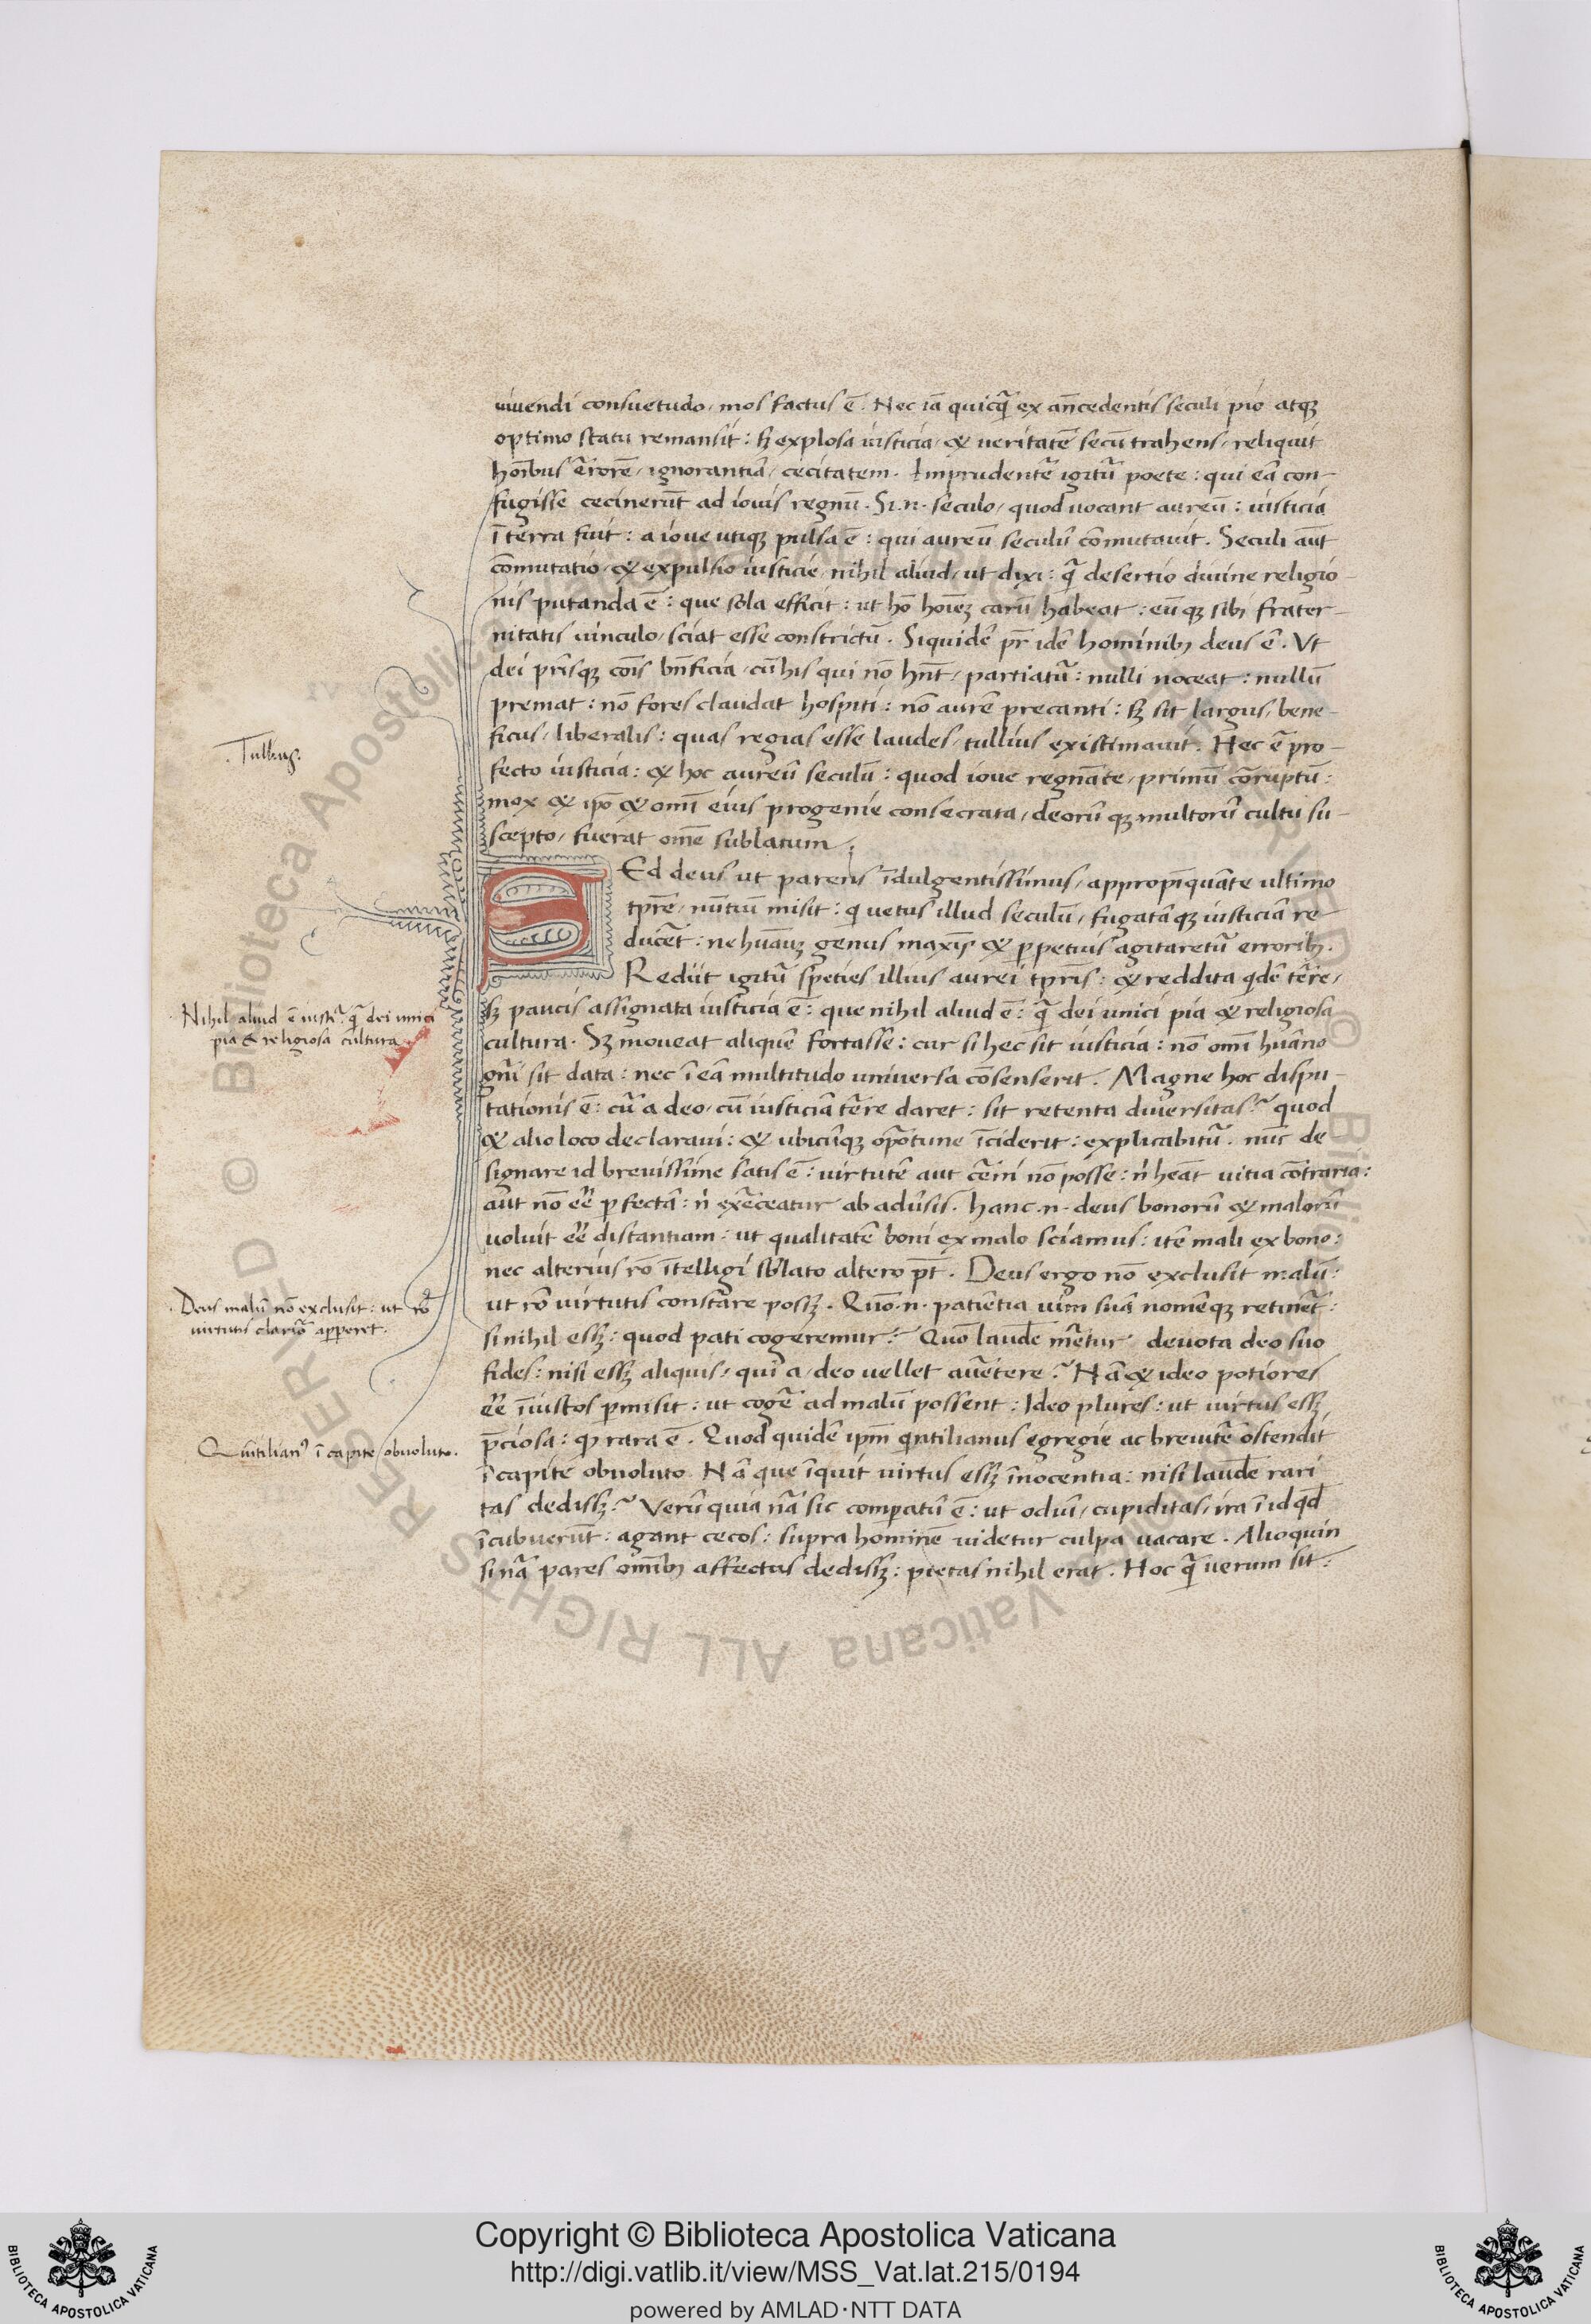 vivendi consuetudo, mos factus ē. Nec iā quicq̄ ex an̄cedentis seculi pio atq;
optimo statu remansit: sꝫ explosa iusticia, & veritatē secū trahens, reliquit
hoībus ērorē, ignorantiā, cecitatem. Imprudentē igitū poete: qui eā con-
fugisse cecinerūt ad iovis regnū. Si.n. seculo, quod vocant aureū: iusticia
ī terra fuit: a iove utiq; pulsa ē: qui aureū seculū cōmutavit. Seculi aūt
cōmutatio, & expulsio iusticie, nihil aliud, ut dixi: q̄ desertio divine religio-
nis putanda ē: que sola efficit: ut hō hoīeꝫ carū habeat: eūq; sibi frater-
nitatis vinculo, sciat esse constrictū. Siquidē pr̄ idē hominibꝫ deus ē. Vt
dei prīsq; cōis bn̄ficia, cū his qui nō hn̄t, partiatū: nulli noceat: nullū
premat: nō fores claudat hospiti: nō aurē precanti: sꝫ sit largus, bene-
ficus, liberalis: quas regias esse laudes, tullius existimavit. Hec ē pro-
fecto iusticia: & hoc aureū seculū: quod iove regnāte, primū cōruptū:
mox & ipō & omī eius progenie consecrata, deorūq; multorū cultu su-
scepto, fuerat omē sublatum.
SEd deus ut parens īdulgentissimus, appropīquāte ultimo
tp̄re, nūtiū misit: q vetus illud seculū, fugatāq; iusticiā re
ducēt: ne huāuꝫ genus maxīs & ꝑpetuis agitaretū erroribꝫ.
Rediit igitū speties illius aurei tp̄ris: & reddita qdē tēre,
sꝫ paucis assignata iusticia ē: que nihil aliud ē: q̄ dei unici pia & religiosa
cultura. Sꝫ moveat aliquē fortasse: cur si hec sit iusticia: nō omī huāno
gn̄i sit data: nec ī eā multitudo universa cōsenserit. Magne hoc dispu-
tationis ē: cū a deo, cū iusticiā tēre daret: sit retenta diversitas? quod
& alio loco declaravi: & ubicūq; opōtune īciderit: explicabitū. nūc de
signare id brevissime satis ē: virtutē aut cēni nō posse: n̄ heāt vitia cōtraria:
aut nō ēē ꝑfectā: n̄ exēceatur ab advīsis. hanc.n. deus bonorū & malorū
voluit ēē distantiam: ut qualitatē boni ex malo sciamus: itē mali ex bono:
nec alterius rō ītelligi sb̄lato altero pt̄. Deus ergo nō exclusit malū:
ut rō virtutis constare possꝫ. Quō.n. patiētia vim suā nomēq; retinēt:
si nihil essꝫ: quod pati cogeremur? Quō laudē mētur devota deo suo
fides: nisi essꝫ aliquis, qui a deo vellet avētere? Nā & ideo potiores
ēē īiustos ꝑmisit: ut cogē ad malū possent: Ideo plures: ut virtus essꝫ
p̄ciosa: qꝫ rara ē. Quod quidē ipm̄ qntilianus egregie ac brevitē ostendit
ī capite obvoluto. Nā que īquit virtus essꝫ īnocentia: nisi laudē rari
tas dedissꝫ? Verū quia nā sic comparatū ē: ut odiū, cupiditas, ira ī id qd̄
īcubuerūt: agant cecos: supra hominē videtur culpa vacare. Alioquin
si nā pares omībꝫ affectus dedissꝫ: pietas nihil erat. Hoc q̄ verum sit:
Tullius.
Nihil aliud ē iustī. q̄ dei unici
pia & religiosa cultura
Deus malū nō exclusit: ut rō
virtutis clariō apperet.
Quītilian⁹ ī capite obvoluto.
Copyright © Biblioteca Apostolica Vaticana
http://digi.vatlib.it/view/MSS_Vat.lat.215/0194
powered by AMLAD·NTT DATA
BIBLIOTECA APOSTOLICA VATICANA
BIBLIOTECA APOSTOLICA VATICANA